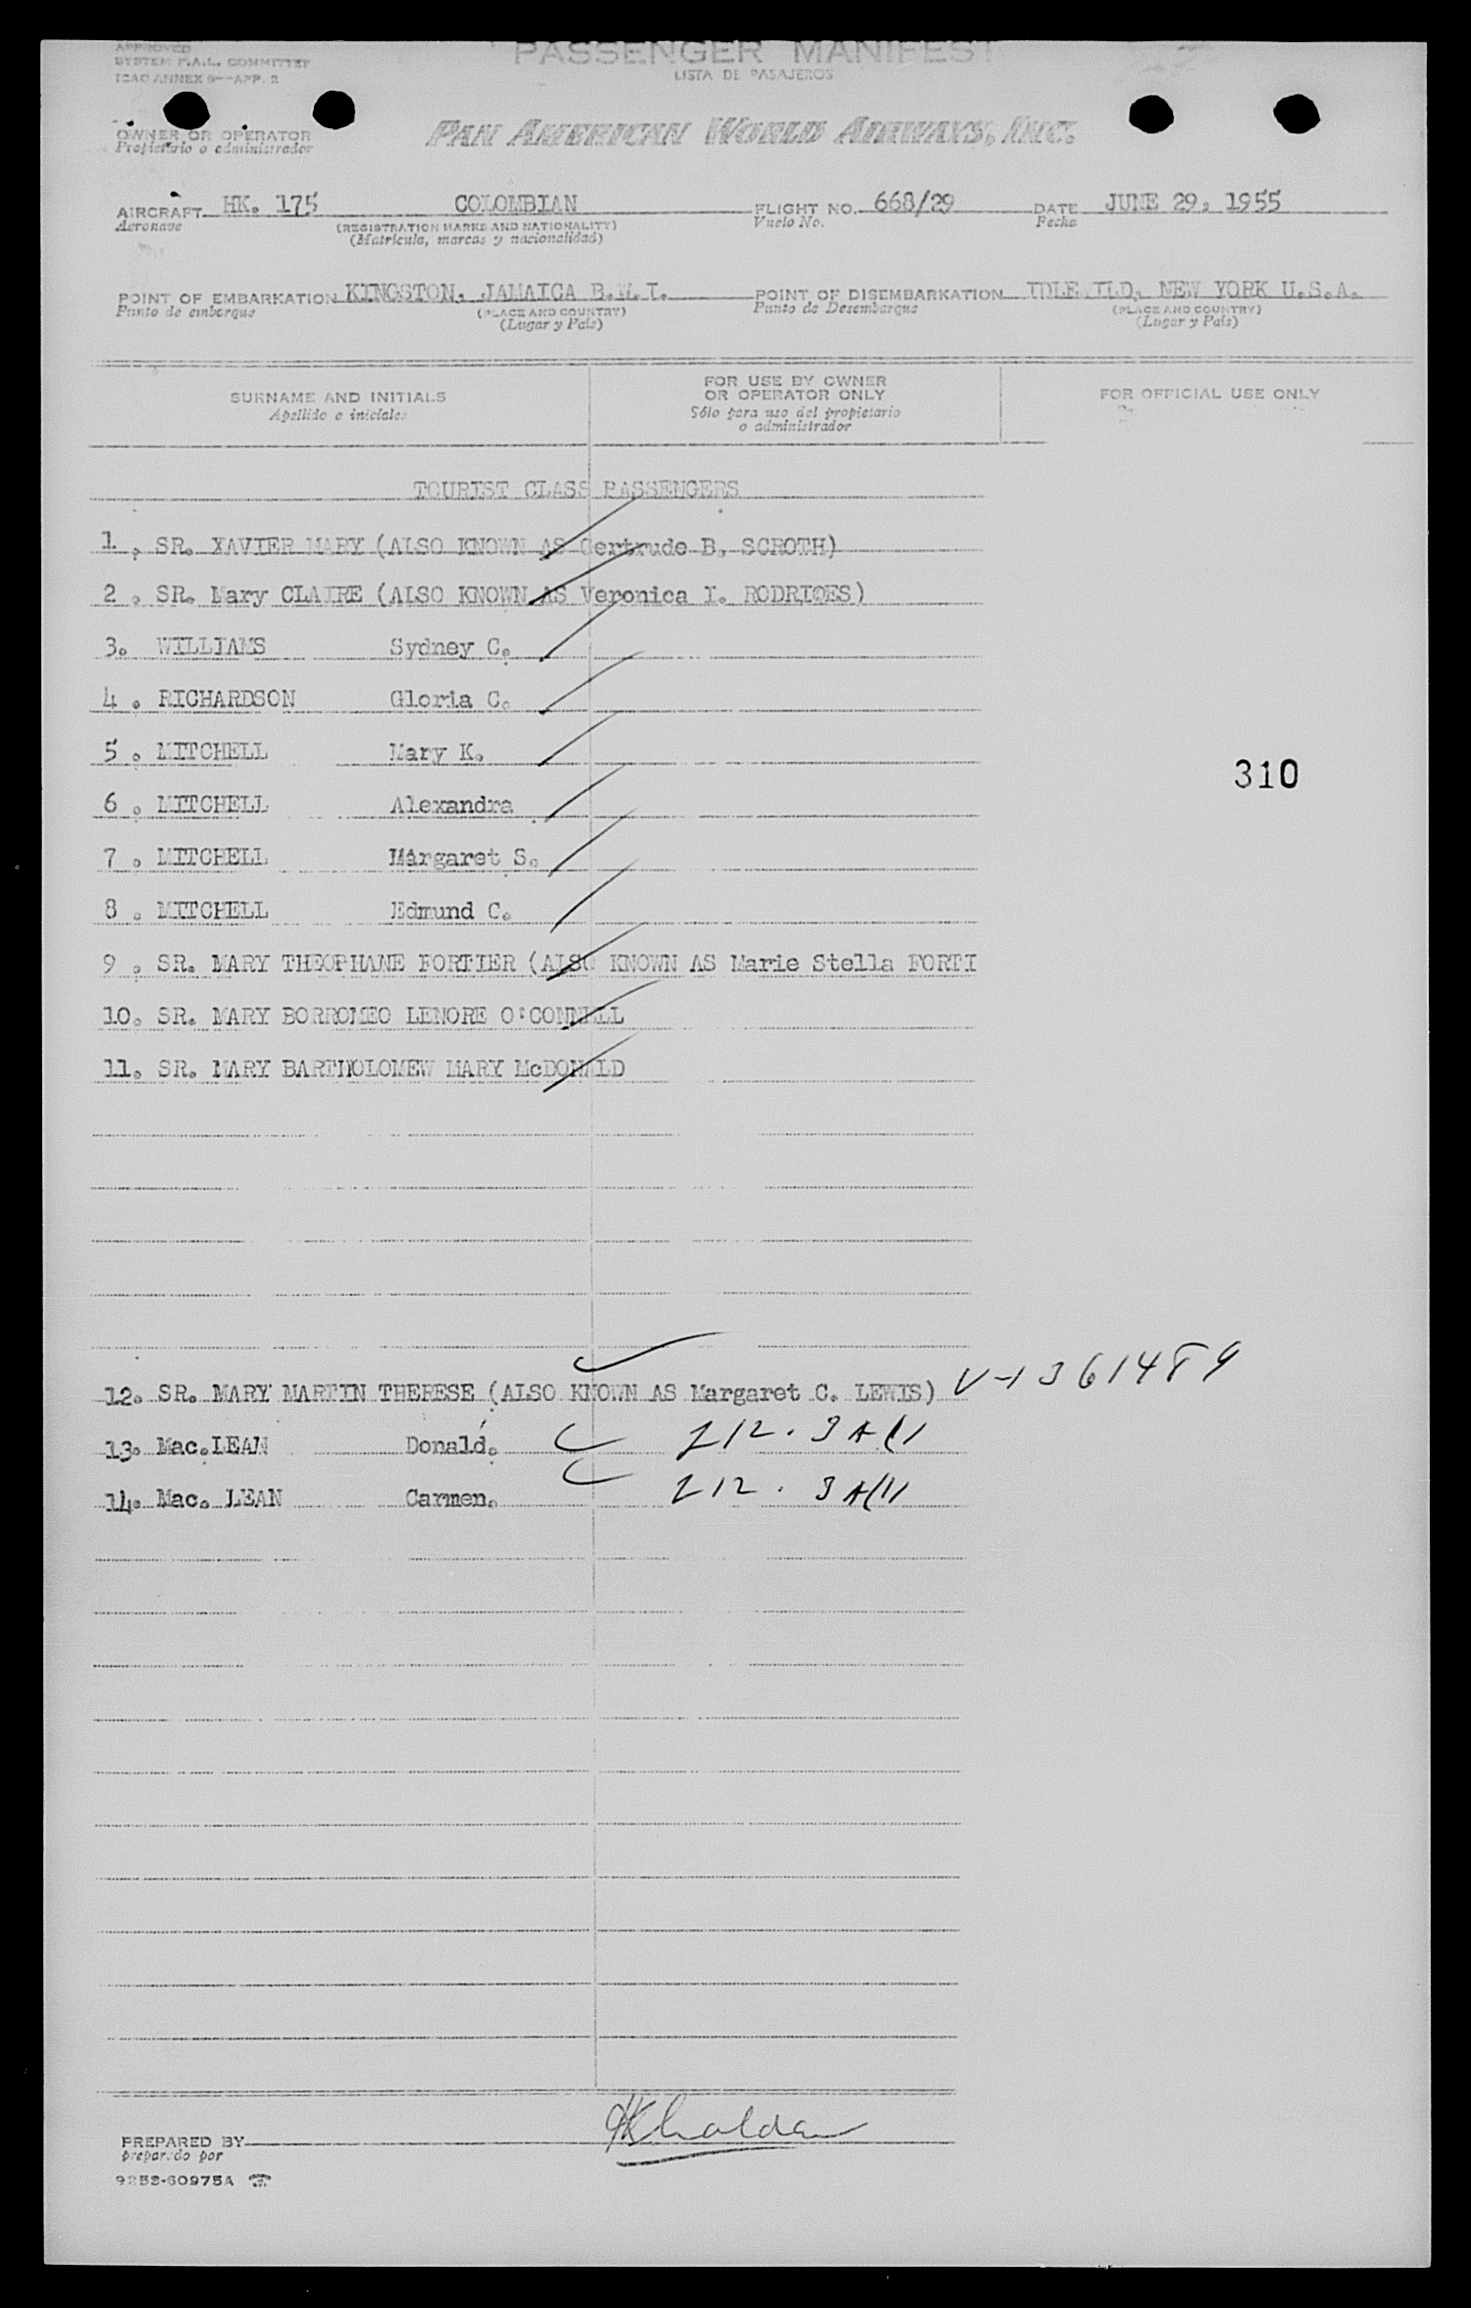 APPROVED
SYSTEM F.A.L. COMMITTEE
ICAO ANNEX 9—APP. 2
PASSENGER MANIFEST
LISTA DE PASAJEROS
OWNER OR OPERATOR
Propietario o administrador
PAN AMERICAN WORLD AIRWAYS, INC.
AIRCRAFT HK. 175 COLOMBIAN FLIGHT NO. 668/29 DATE JUNE 29, 1955
Aeronave (REGISTRATION MARKS AND NATIONALITY) Vuelo No. Fecha
(Matrícula, marcas y nacionalidad)
POINT OF EMBARKATION KINGSTON, JAMAICA B.W.I. POINT OF DISEMBARKATION IDLEWILD, NEW YORK U.S.A.
Punto de embarque (PLACE AND COUNTRY) Punto de Desembarque (PLACE AND COUNTRY)
(Lugar y País) (Lugar y País)
SURNAME AND INITIALS FOR USE BY OWNER OR OPERATOR ONLY FOR OFFICIAL USE ONLY
Apellido e iniciales Sólo para uso del propietario o administrador
TOURIST CLASS PASSENGERS
1. SR. XAVIER MARY (ALSO KNOWN AS Gertrude B. SCROTH)
2. SR. Mary CLAIRE (ALSO KNOWN AS Veronica I. RODRIQES)
3. WILLIAMS Sydney C.
4. RICHARDSON Gloria C.
5. MITCHELL Mary K.
310
6. MITCHELL Alexandra
7. MITCHELL Margaret S.
8. MITCHELL Edmund C.
9. SR. MARY THEOPHANE FORTIER (ALSO KNOWN AS Marie Stella FORTI
10. SR. MARY BORROMEO LENORE O'CONNELL
11. SR. MARY BARTHOLOMEW MARY McDONALD
12. SR. MARY MARTIN THERESE (ALSO KNOWN AS Margaret C. LEWIS) V-1361489
13. Mac.LEAN Donald. 212.3
14. Mac. LEAN Carmen. 212.3
PREPARED BY
preparado por
9252-60975A